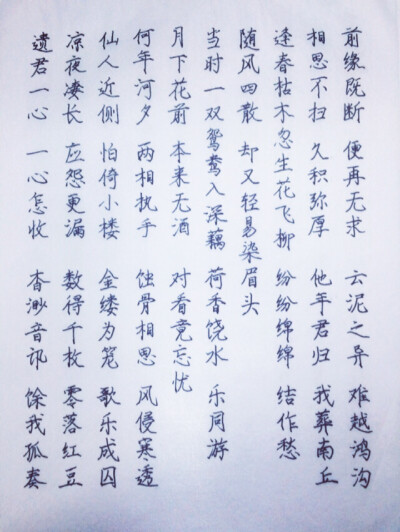 前缘既断 便再无求 云泥之异 难越鸿沟
相思不扫 久积弥厚 他年君归 我葬南丘
逢春枯木忽生花飞柳 纷纷绵绵 结作愁
随风四散 却又轻易染眉头
当时一双鸳鸯入深藕 荷香饶水 乐同游
月下花前 本来无酒 对看竟忘忧
何年河夕 两相执手 蚀骨相思 风侵寒透
仙人近侧 怕倚小楼 金缕为笼 歌乐成囚
凉夜凄长 应怨更漏 数得千枚 零落红豆
遗君一心 一心怎收 杳渺音讯 馀我孤奏